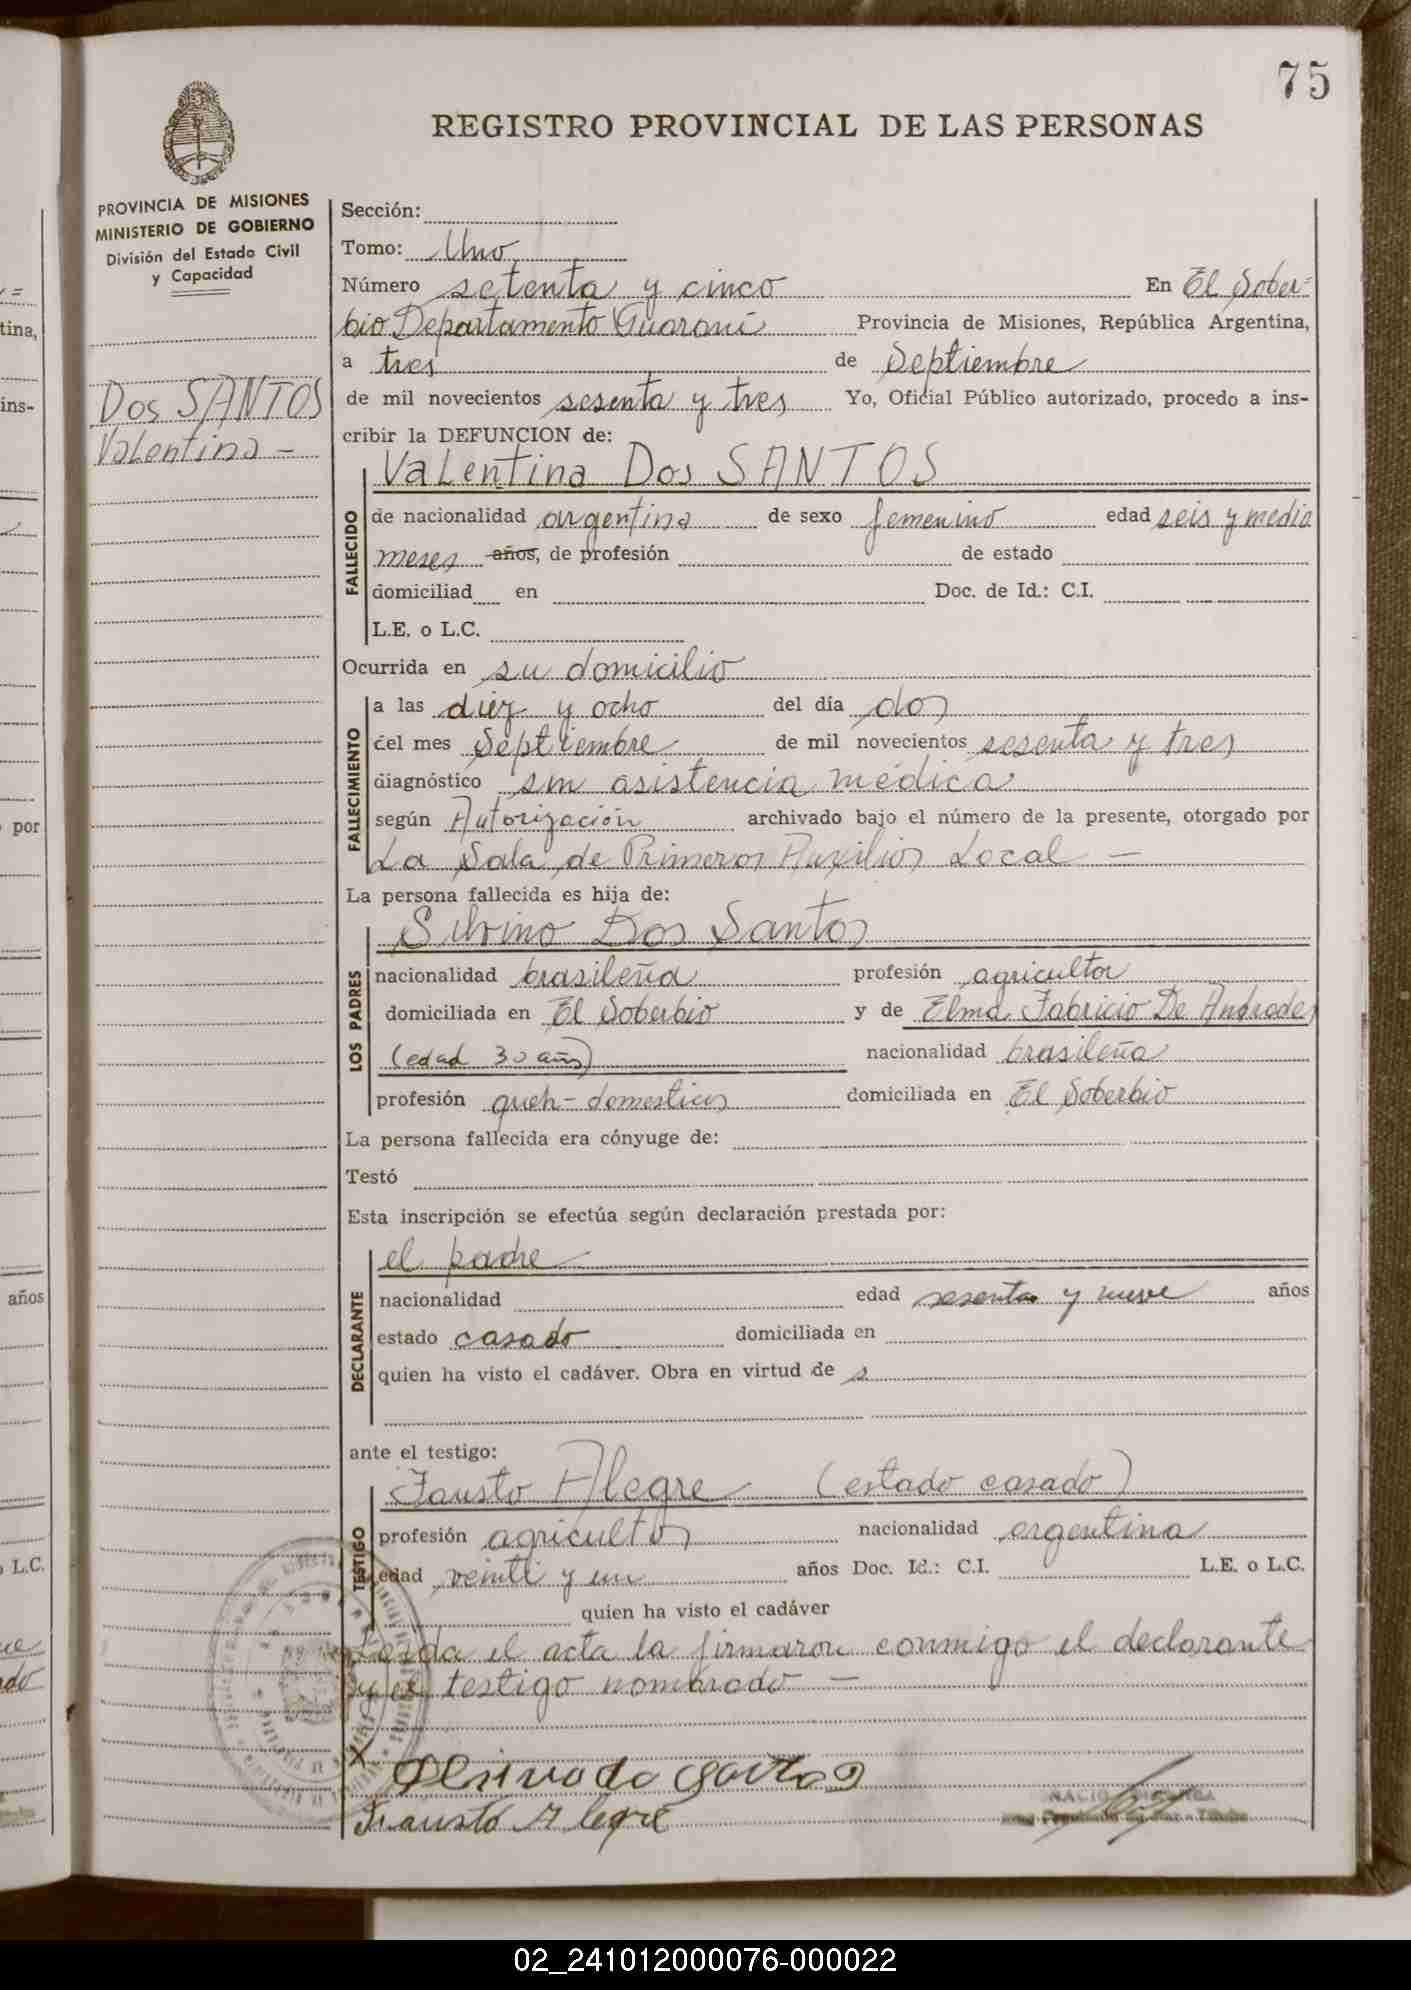 75
REGISTRO PROVINCIAL DE LAS PERSONAS
PROVINCIA DE MISIONES
MINISTERIO DE GOBIERNO
División del Estado Civil
y Capacidad
Dos SANTOS
Valentina -
Sección:
Tomo: Uno
Número setenta y cinco En El Sober-
bio Departamento Guaraní Provincia de Misiones, República Argentina,
a tres de Septiembre
de mil novecientos sesenta y tres Yo, Oficial Público autorizado, procedo a ins-
cribir la DEFUNCION de:
Valentina Dos SANTOS
FALLECIDO
de nacionalidad argentina de sexo femenino edad seis y medio
meses años, de profesión de estado
domiciliad en Doc. de Id.: C.I.
L.E. o L.C.
Ocurrida en su domicilio
FALLECIMIENTO
a las diez y ocho del día dos
del mes Septiembre de mil novecientos sesenta y tres
diagnóstico sin asistencia médica
según Autorización archivado bajo el número de la presente, otorgado por
La Sala de Primeros Auxilios Local -
La persona fallecida es hija de:
Silvino Dos Santos
LOS PADRES
nacionalidad brasileña profesión agricultor
domiciliada en El Soberbio y de Elma Fabricio De Andrade
(edad 30 años) nacionalidad brasileña
profesión queh-domesticos domiciliada en El Soberbio
La persona fallecida era cónyuge de:
Testó
Esta inscripción se efectúa según declaración prestada por:
el padre
DECLARANTE
nacionalidad edad sesenta y nueve años
estado casado domiciliada en
quien ha visto el cadáver. Obra en virtud de
ante el testigo:
Fausto Alegre (estado casado)
TESTIGO
profesión agricultor nacionalidad argentina
edad veinti y un años Doc. Id.: C.I. L.E. o L.C.
quien ha visto el cadáver
Leida el acta la firmaron conmigo el declarante
y el testigo nombrado -
Fausto Alegre
tina,
ins-
por
años
L.C.
02_241012000076-000022